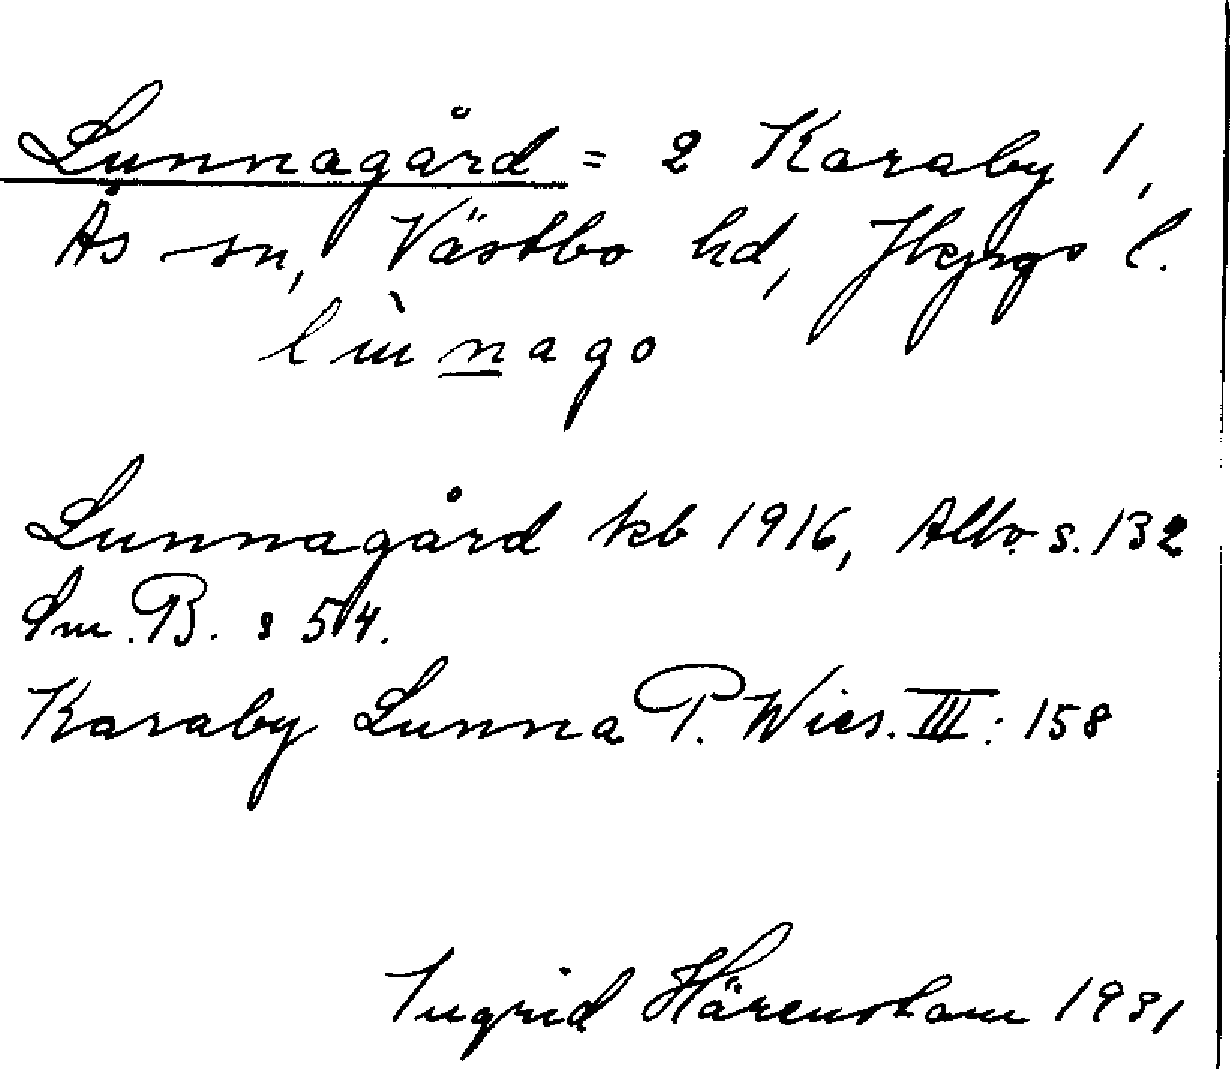 Lunnagård = 2 Karaby 1,
Ås sn, Västbo hd, Jkpgs l.
lùnago
Lunnagård kb 1916, Allbo. s. 132
Sm. B. s 54.
Karaby Lunna P. Wies. III: 158
Ingrid Härenstam 1931